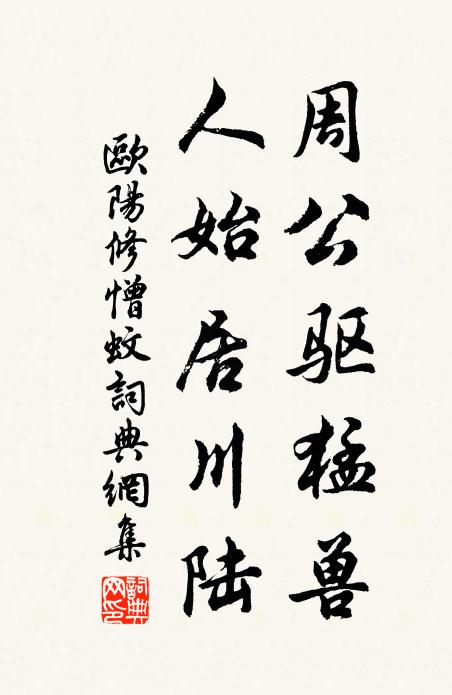 周公驱猛兽
人始居川陆
歐陽修憎蚊詞典網集
詞典網印